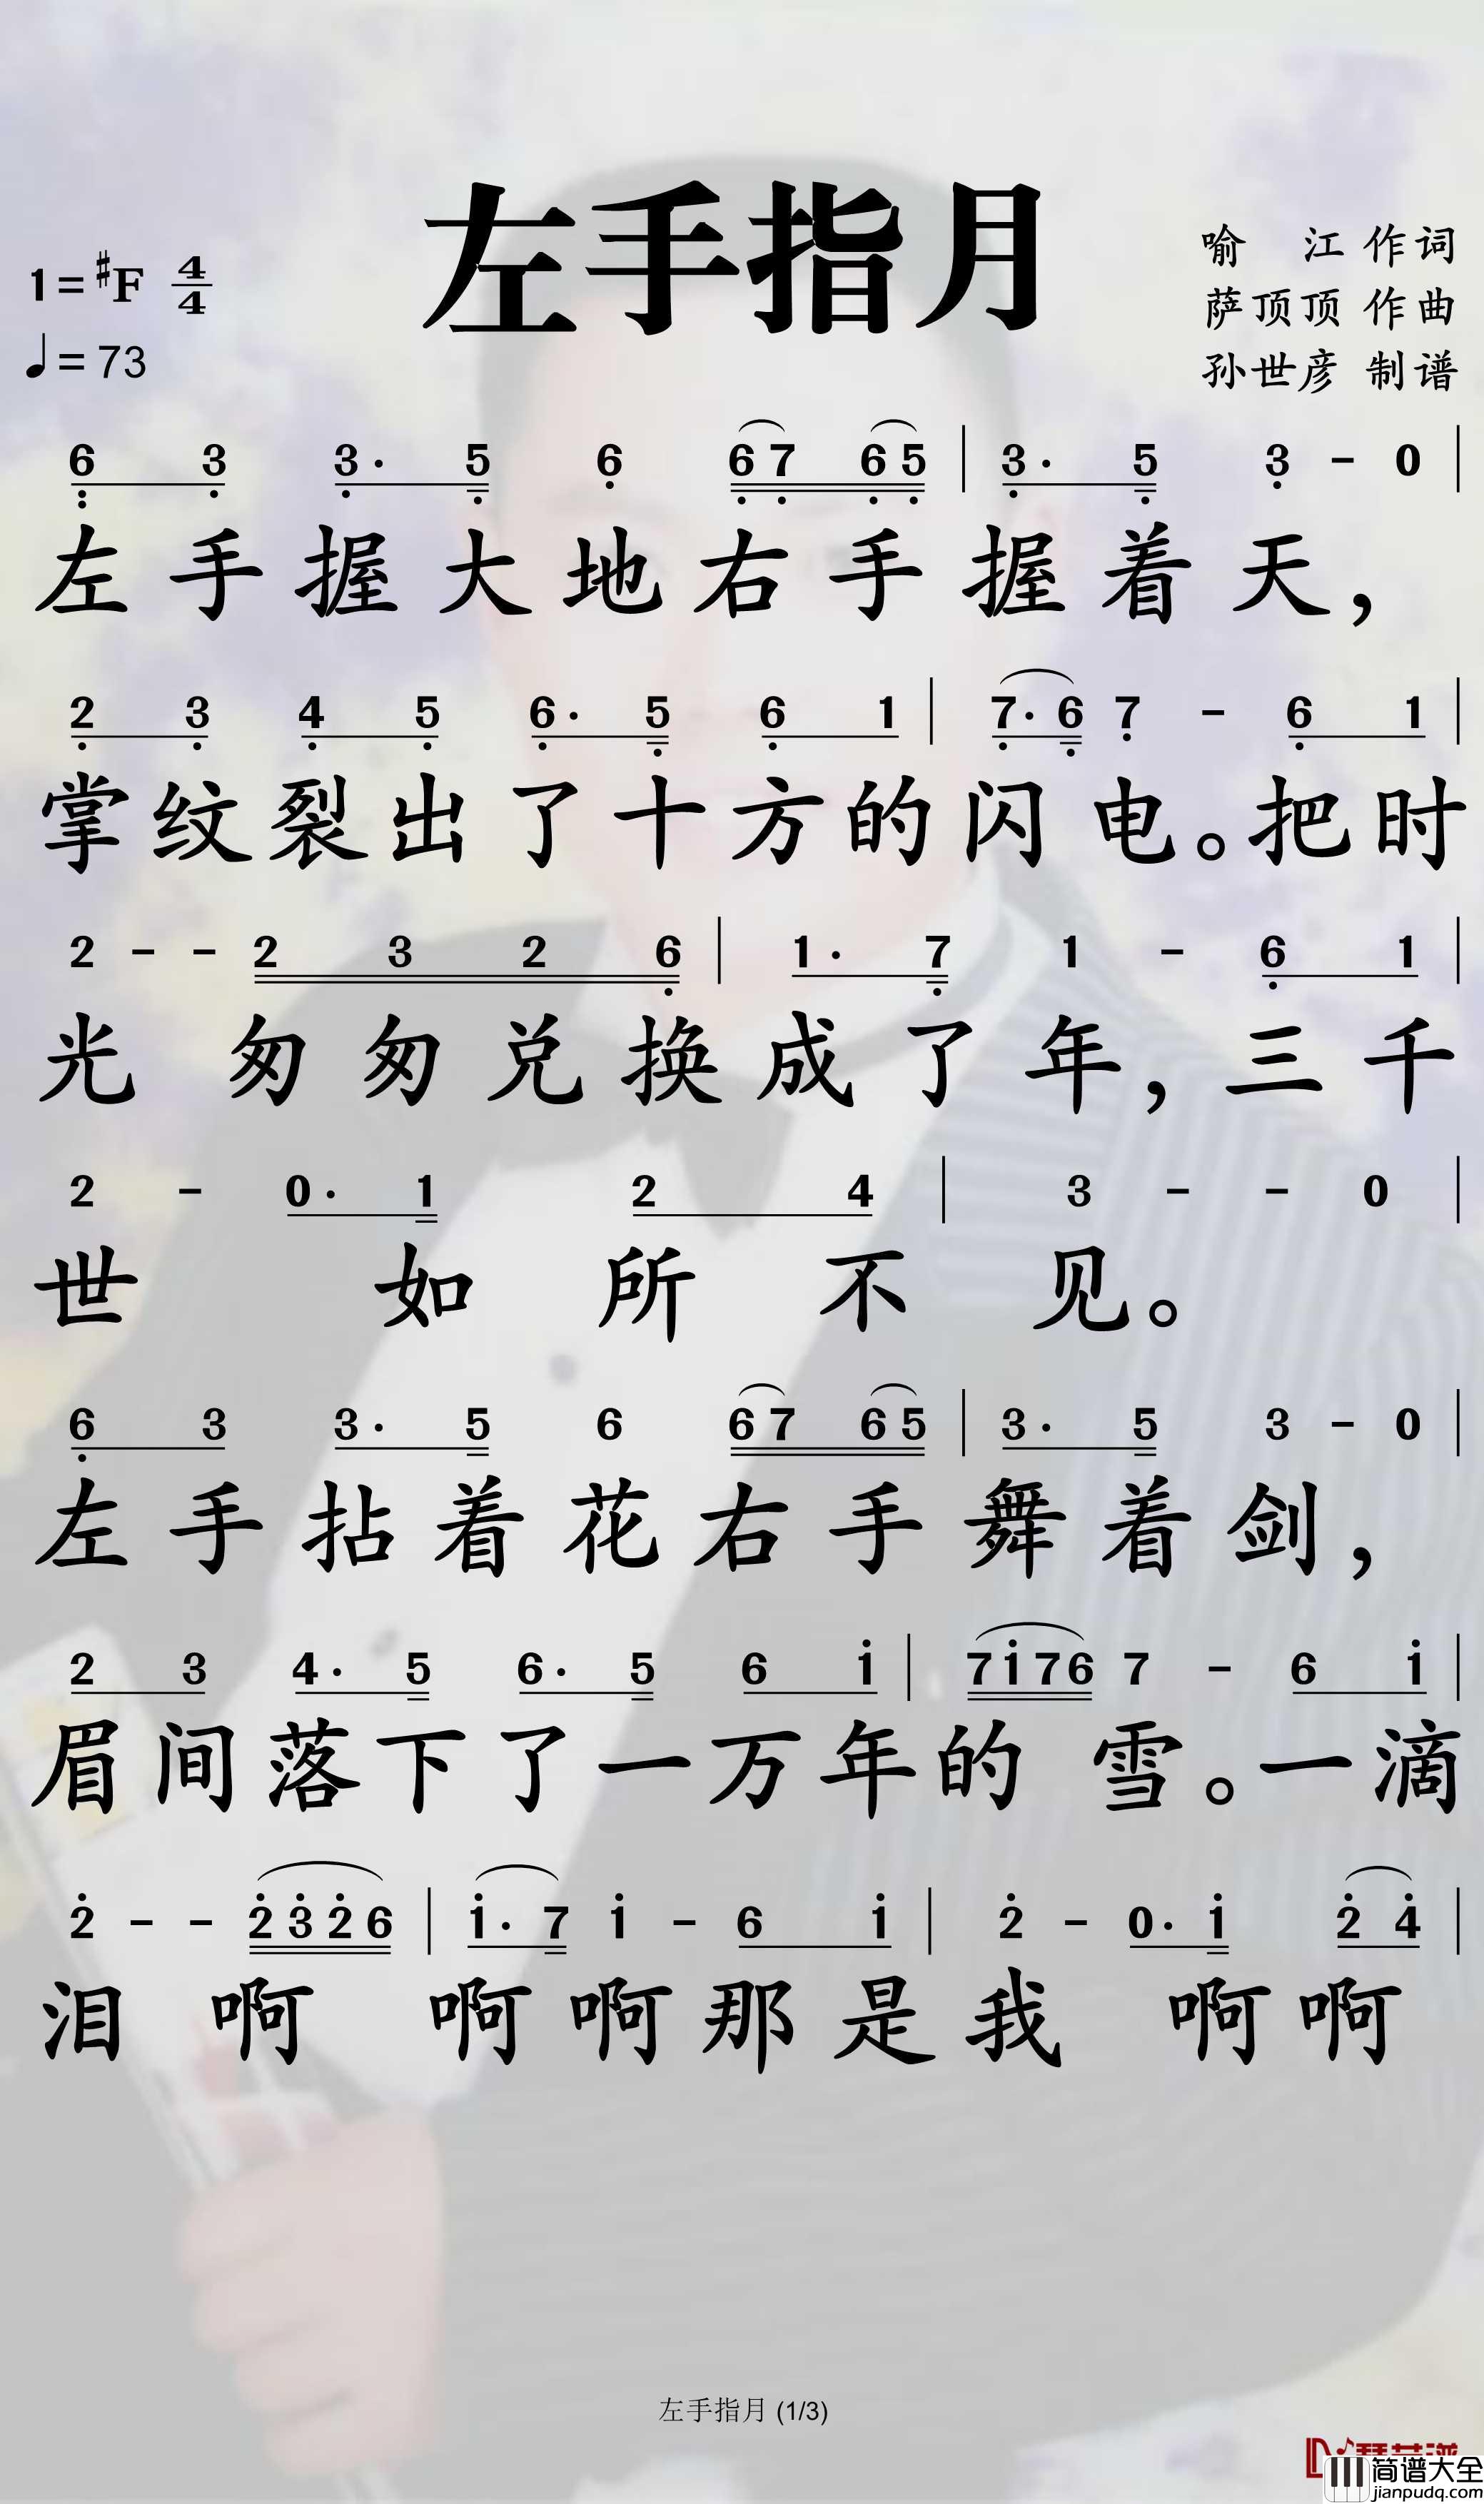 左手指月
1=#F 4/4
♩=73
喻 江 作词
萨顶顶 作曲
孙世彦 制谱
6 3 3· 5 6 6 7 6 5 | 3· 5 3 - 0 |
左手握大地右手握着天，
2 3 4 5 6· 5 6 1 | 7· 6 7 - 6 1 |
掌纹裂出了十方的闪电。把时
2 - - 2 3 2 6 | 1· 7 1 - 6 1 |
光 匆匆兑换成了年，三千
2 - 0· 1 2 4 | 3 - - 0 |
世 如所不见。
6 3 3· 5 6 6 7 6 5 | 3· 5 3 - 0 |
左手拈着花右手舞着剑，
2 3 4· 5 6· 5 6 i | 7 i 7 6 7 - 6 i |
眉间落下了一万年的 雪。一滴
2 - - 2 3 2 6 | i· 7 i - 6 i | 2 - 0· i 2 4 |
泪 啊 啊啊那是我 啊啊
左手指月 (1/3)
简谱大全
jianpudq.com